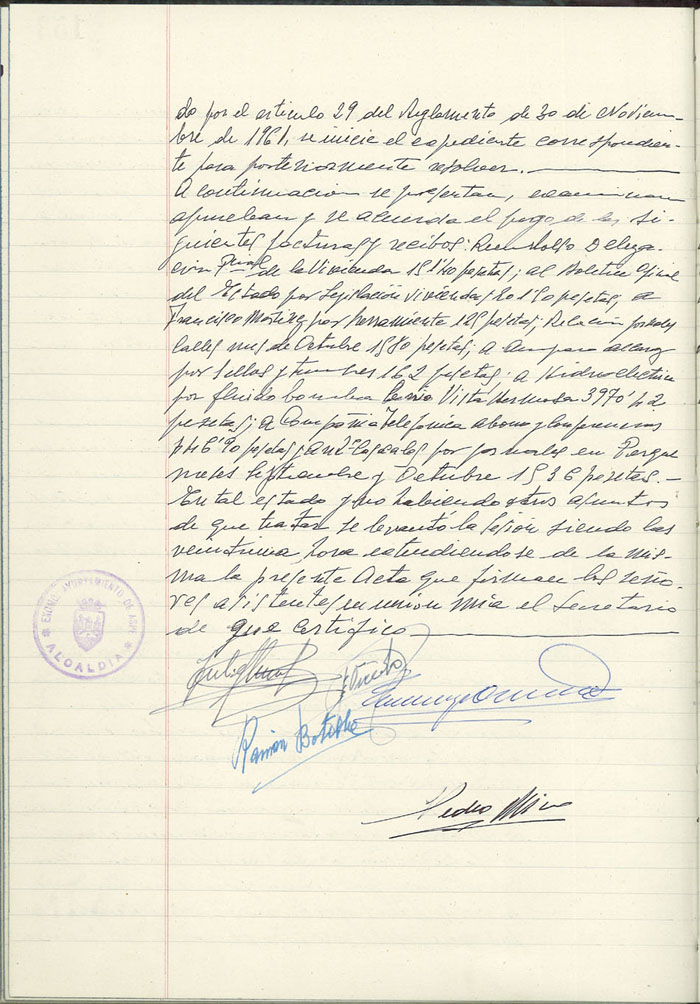 do por el articulo 29 del Reglamento de 30 de Noviem-
bre de 1961, se inicie el expediente correspondien-
te para posteriormente resolver.
A continuacion se presentan, examinan
aprueban y se acuerda el pago de las si-
guientes facturas y recibos: Reembolso Delega-
cion Pval de la Vivienda pesetas; al Boletin Oficial
del Estado por Legislación Vivienda pesetas, a
Francisco Martinez por herramienta 125 pesetas; Relacion jornales
Calles mes de Octubre 1580 pesetas; a Amparo
por sellos y timbres 162 pesetas; a Hidroelectrica
por fluido bomba Barrio Vistahermosa
pesetas; a Compañia Telefonica abono y conferencias
pesetas y por jornales en Parque
meses Septiembre y Octubre 1536 pesetas.-
En tal estado y no habiendo otros asuntos
de que tratar se levantó la sesion siendo las
veintiuna hora extendiendose de la mis-
ma la presente Acta que firman los seño-
res asistentes en union mia el Secretario
de que certifico
EXCMO. AYUNTAMIENTO DE
ALCALDIA
Ramon Botella
Pedro